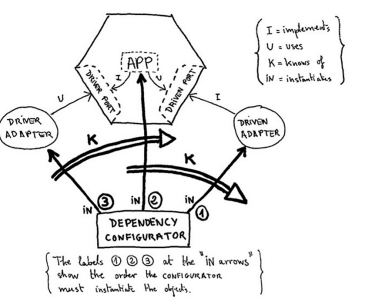 I = implements
U = uses
K = knows of
iN = instantiates
APP
I
U
DRIVER PORT
DRIVEN PORT
U
I
DRIVER
ADAPTER
DRIVEN
ADAPTER
K
K
iN ③
iN ②
iN ①
DEPENDENCY
CONFIGURATOR
The labels ① ② ③ at the "iN arrows"
show the order the CONFIGURATOR
must instantiate the objects.